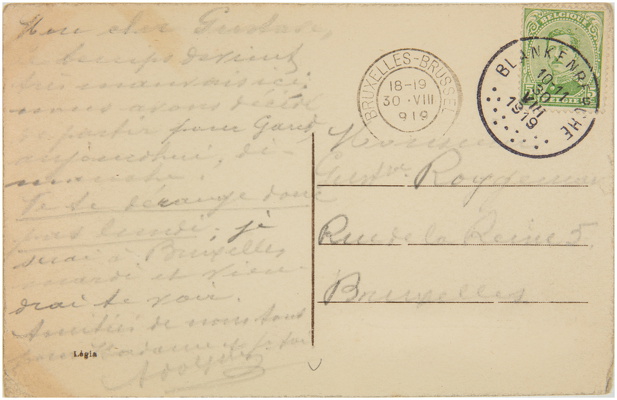 Mon cher Gustave,
le temps devient
très mauvais ici,
nous avons décidé
de partir pour Gand,
aujourd'hui, di-
manche.
Ne te dérange donc
pas lundi, je
serai à Bruxelles
mardi et vien-
drai te voir.
Amitiés de nous tous
pour Madame et
Adolphe
Légia
BRUXELLES-BRUSSEL
18-19
30·VIII
919
BELGIQUE
5 BELGIE 5
BLANKENBERGHE
10-11
30
VIII
1919
Monsieur
Gustave
Rue de la Reine 5
Bruxelles